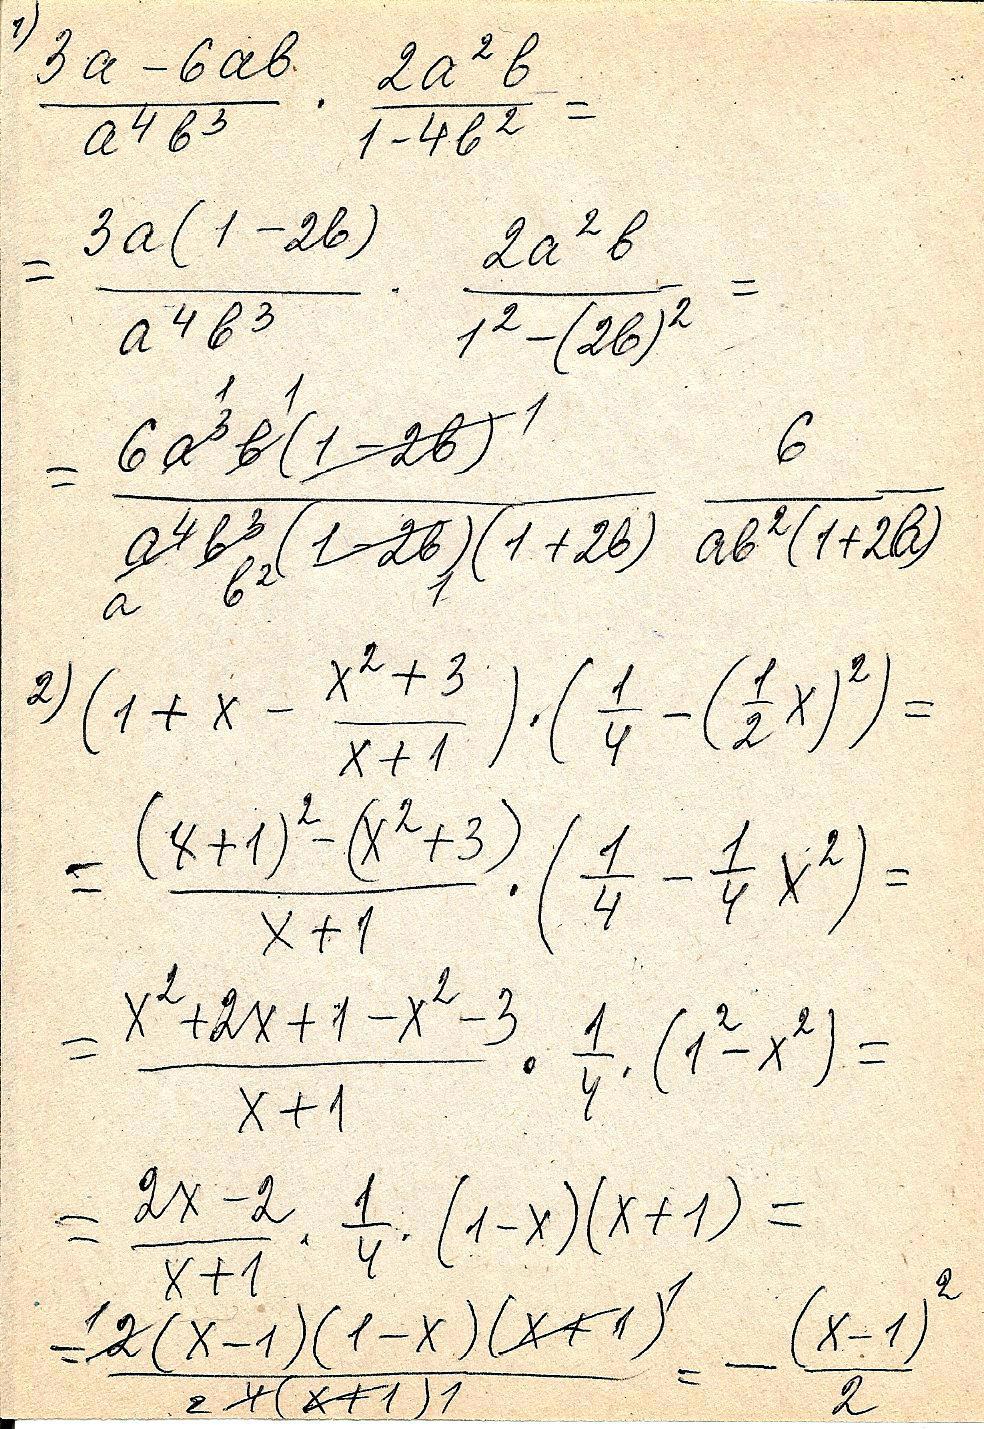 1) (3a - 6ab)/(a⁴b³) · (2a²b)/(1 - 4b²) =
= (3a(1 - 2b))/(a⁴b³) · (2a²b)/(1² - (2b)²) =
1 1 1
= (6a³b(1 - 2b))/(a⁴b³(1 - 2b)(1 + 2b)) 6/(ab²(1 + 2b))
a b² 1
2) (1 + x - (x² + 3)/(x + 1)) · (1/4 - (1/2 x)²) =
= ((x + 1)² - (x² + 3))/(x + 1) · (1/4 - 1/4 x²) =
= (x² + 2x + 1 - x² - 3)/(x + 1) · 1/4 · (1² - x²) =
= (2x - 2)/(x + 1) · 1/4 · (1 - x)(x + 1) =
1 1
= (2(x - 1)(1 - x)(x + 1))/(4(x + 1)) = - (x - 1)²/2
2 1